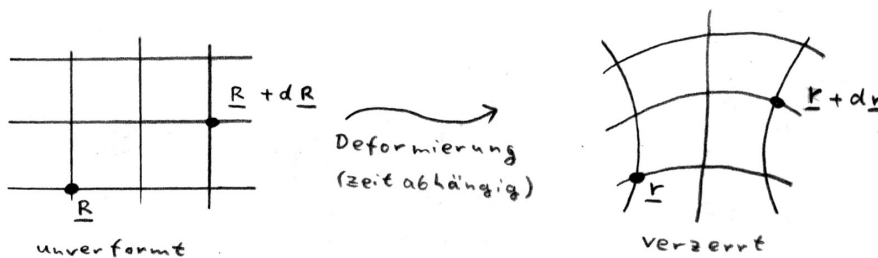 R + dR
R
unverformt
Deformierung
(zeitabhängig)
r + dr
r
verzerrt